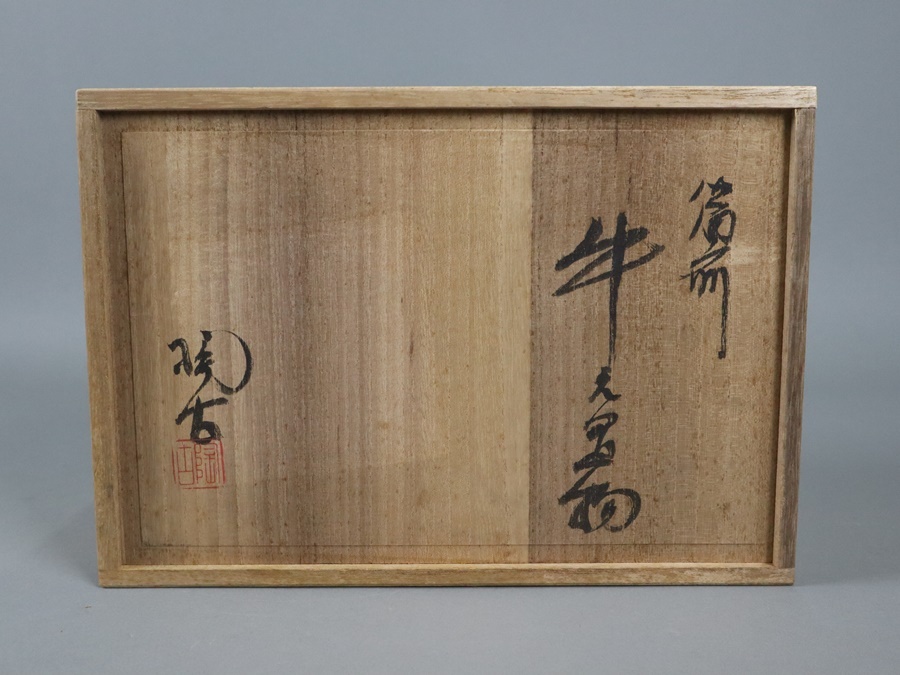 備前
牛之置物
陶古
陶古